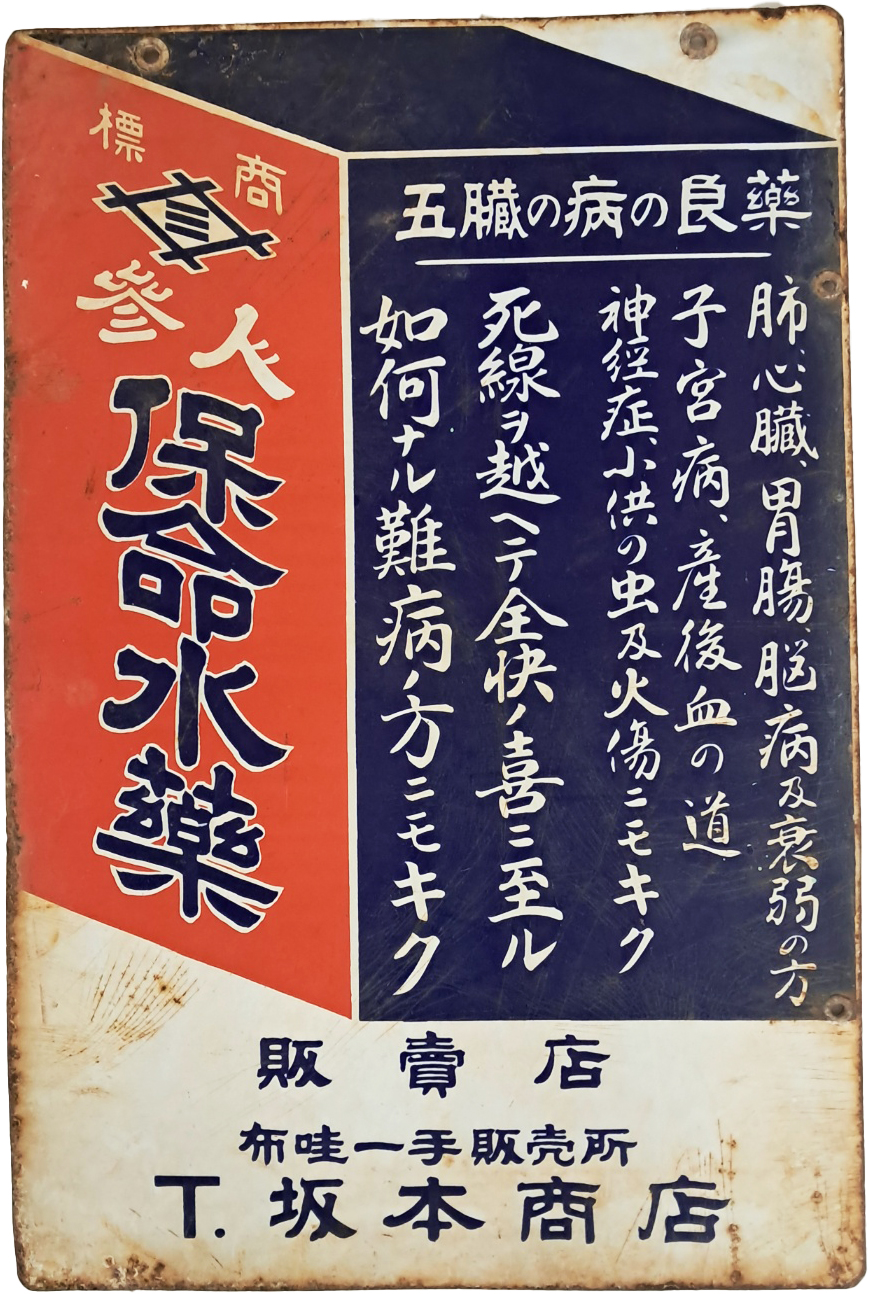 商標
人參
保命水藥
五臓の病の良藥
肺心臓、胃腸、脳病及衰弱の方
子宮病、産後血の道
神経症、小供の虫及火傷ニモキク
死線ヲ越ヘテ全快ノ喜ニ至ル
如何ナル難病ノ方ニモキク
販賣店
布哇一手販売所
T. 坂本商店